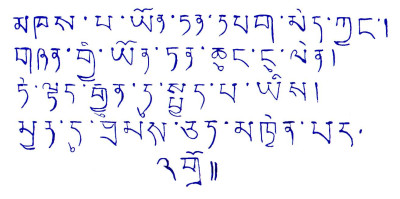 མཁས་པ་ཡོན་ཏན་དཔག་མེད་ཀྱང་།
གཞན་གྱི་ཡོན་ཏན་ཆུང་ངུ་ལེན།
དེ་ལྟར་རྒྱུན་དུ་སྤྱད་པ་ཡིས།
མྱུར་དུ་ཐམས་ཅད་མཁྱེན་པར་
འགྲོ༎